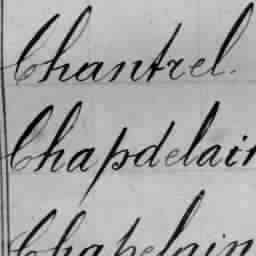 Chantrel.
Chapdelain
Chapelain